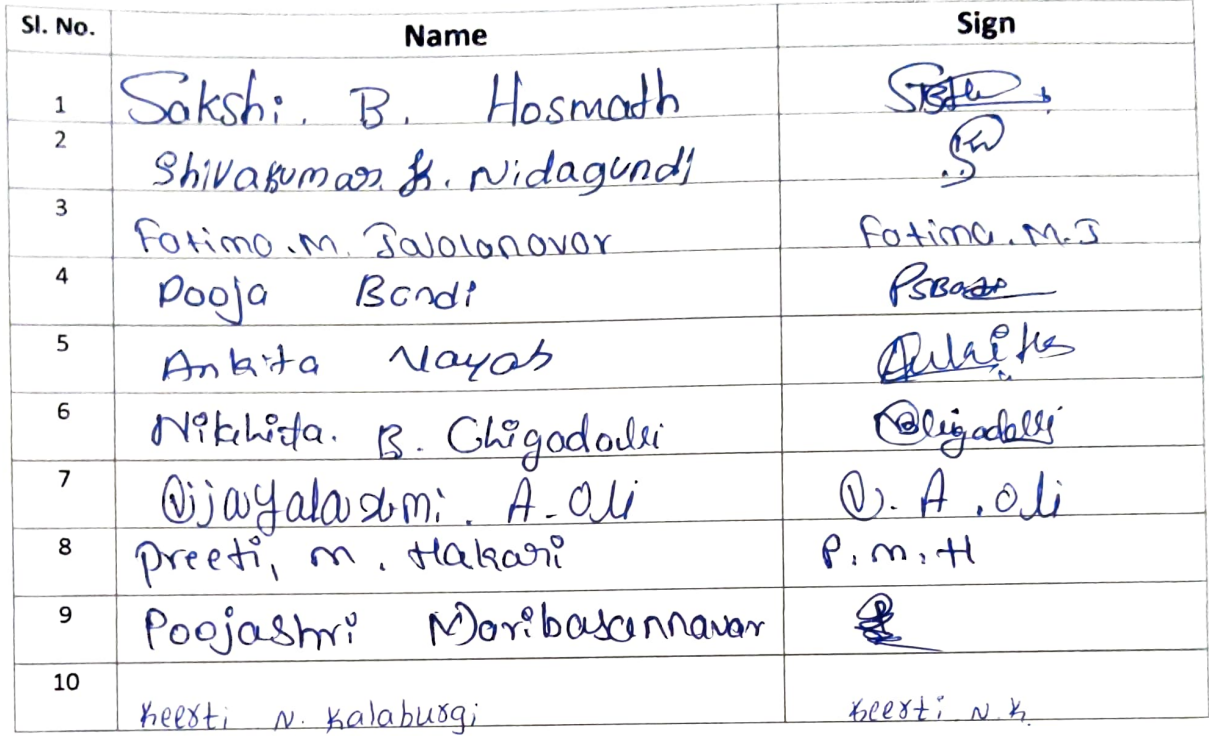 Sl. No. Name Sign
1 Sakshi. B. Hosmath
2 Shivakumar. K. Nidagundi
3 Fatima.M. Jalalanavar Fatima.M.J
4 Pooja Bandi
5 Ankita Nayak Ankita
6 Nikhita. B. Chigadolli Chigadolli
7 Vijayalaxmi. A. Oli V. A. Oli
8 Preeti, M. Hakari P.M.H
9 Poojashri Maribasannavar
10 Keerti N. Kalaburgi Keerti N.K.